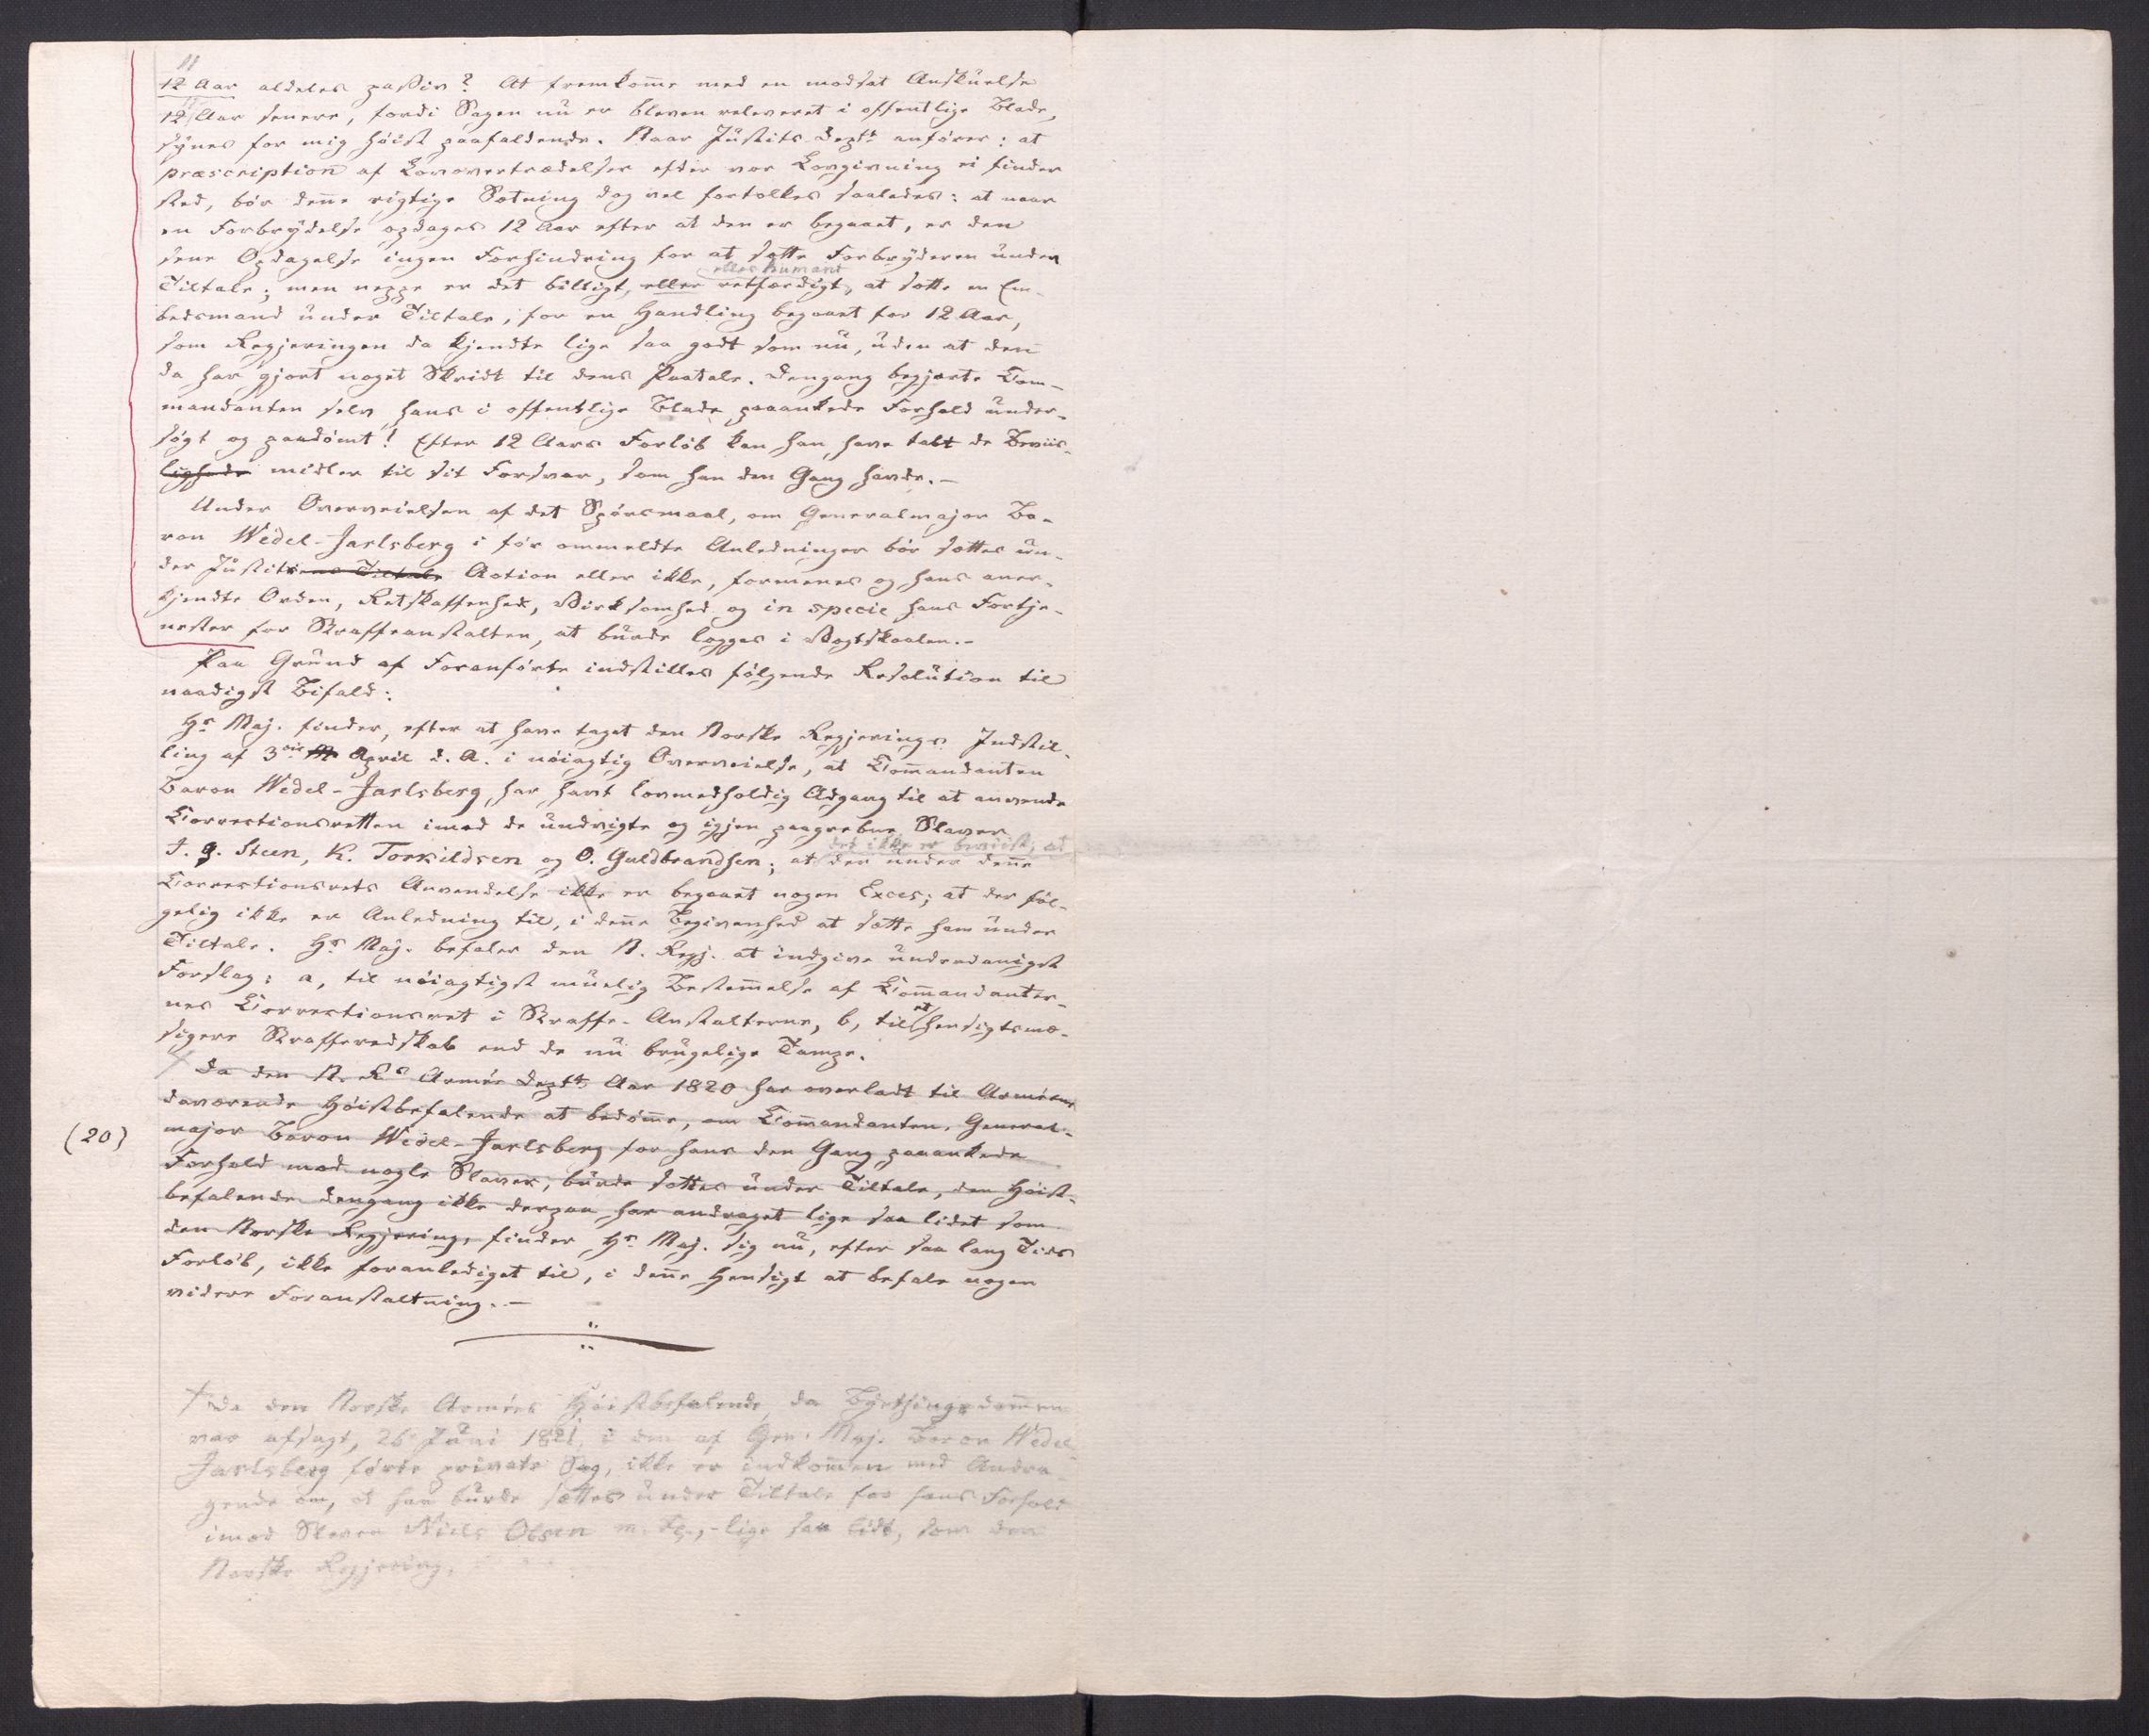 11
12 Aar aldeles passiv? At fremkom̄e med en modsat Anskuelse
12 Aar senere, fordi Sagen nu er bleven releveret i offentlige Blade,
synes for mig høist paafaldende. Naar Justits Deptt anfører: at
præscription af Lovovertrædelser efter vor Lovgivning ei finder
sted, bør den̄e rigtige Sætning dog vel fortolkes saaledes: at naar
en Forbrydelse opdages 12 Aar efter at den er begaaet, er den
sene Opdagelse ingen Forhindring for at sætte Forbryderen under
eller humant
Tiltale; men neppe er det billigt, eller retfærdigt, at sætte en Em-
bedsmand under Tiltale, for en Handling begaaet for 12 Aar,
som Regjeringen da kjendte lige saa godt som nu, uden at den
da har gjort noget Skridt til dens Paatale. Dengang begjærte Com-
mandanten selv hans i offentlige Blade paaankede Forhold under-
søgt og paadømt! Efter 12 Aars Forløb kan han have tabt de Beviis-
lighede midler til sit Forsvar, som han den Gang havde.-
Under Overveielsen af det Spørsmaal, om Generalmajor Ba-
ron Wedel-Jarlsberg i før ommeldte Anledninger bør sættes un-
der Justitiens Tiltale Action eller ikke, formenes og hans aner-
kjendte Orden, Retskaffenhed, Virksomhed og in specie hans Fortje-
nester for Straffeanstalten, at burde lægges i Vægtskaalen.-
Paa Grund af Foranførte indstilles følgende Resolution til
naadigst Bifald:
Hs Maj. finder, efter at have taget den Norske Regjerings Indstil-
ling af 3die April d. A. i nøiagtig Overveielse, at Com̄andanten
Baron Wedel-Jarlsberg, har havt lovmedholdig Adgang til at anvende
Correctionsretten imod de undvigte og igjen paagrebne Slaver
det ikke er beviist, at
J. J. Steen, K. Torkildsen og O. Guldbrandsen; at der under den̄e
Correctionsrets Anvendelse ikke er begaaet nogen Exces; at der føl-
gelig ikke er Anledning til, i den̄e Begivenhed at sætte ham under
Tiltale. Hs Maj. befaler den N. Regj. at indgive underdanigst
Forslag: a, til nøiagtigst muelig Bestem̄else af Com̄andanter-
nes Correctionsret i Straffe-Anstalterne, b, til et hensigtsmæ-
sigere Strafferedskab end de nu brugelige Tampe.
Da den N. Rs Armée Deptt Aar 1820 har overladt til Arméens
daværende Høistbefalende at bedøm̄e, om Com̄andanten, General-
(20)
major Baron Wedel-Jarlsberg for hans den Gang paaankede
Forhold mod nogle Slaver, burde sættes under Tiltale, den Høist-
befalende dengang ikke derpaa har andraget lige saa lidet som
den Norske Regjering, finder Hs Maj. sig nu, efter saa lang Tids
Forløb, ikke foranlediget til, i den̄e Hensigt at befale nogen
videre Foranstaltning.-
Da den Norske Armées Høistbefalende, da Byethingsdom̄en
var afsagt, 26 Juni 1821, i den af Gen. Maj. Baron Wedel
Jarlsberg førte private Sag, ikke er indkom̄en med Andra-
gende om, at han burde sættes under Tiltale for hans Forhold
imod Slaven Niels Olsen m. Fl.,-lige saa lidt, som den
Norske Regjering,